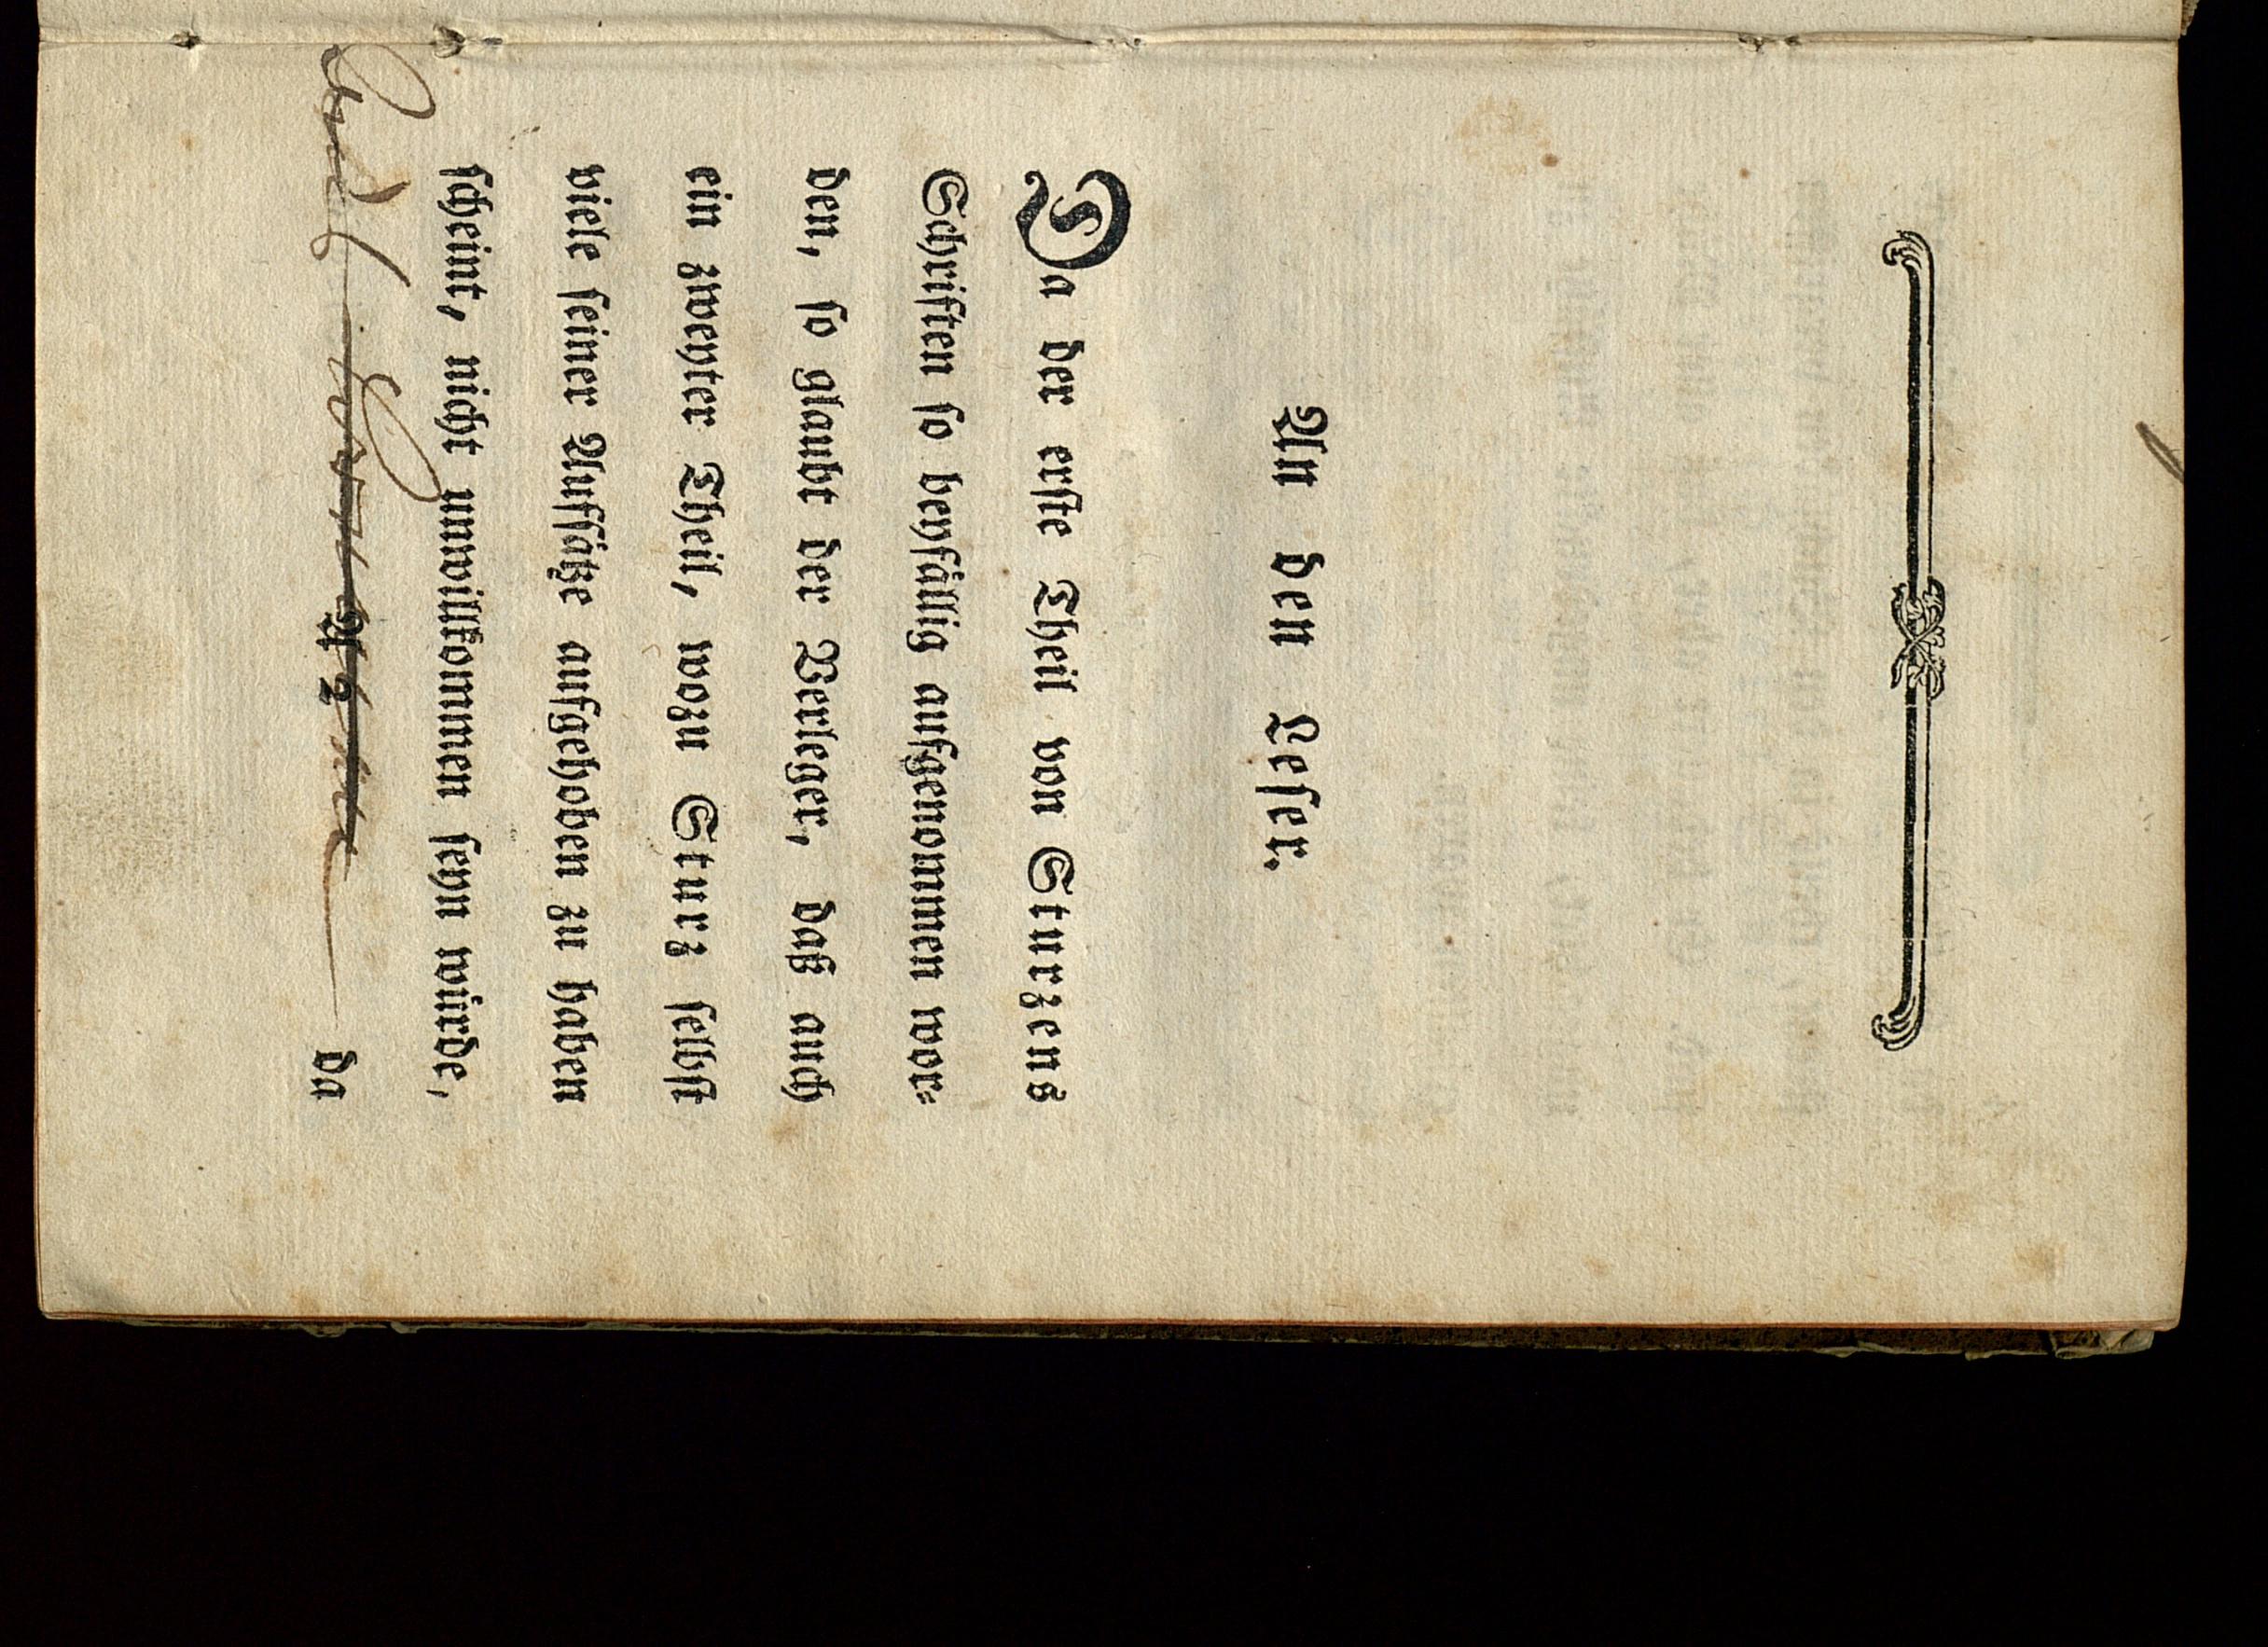 An den Leser.
Da der erste Theil von Sturzens
Schriften so beyfällig aufgenommen wor⸗
den, so glaubt der Verleger, daß auch
ein zweyter Theil, wozu Sturz selbst
viele seiner Aufsätze aufgehoben zu haben
scheint, nicht unwillkommen seyn würde,
A 2
da